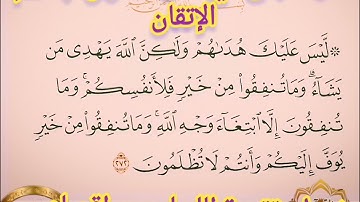 الإتقان
۞ لَّيْسَ عَلَيْكَ هُدَىٰهُمْ وَلَٰكِنَّ ٱللَّهَ يَهْدِى مَن
يَشَآءُ ۗ وَمَا تُنفِقُوا۟ مِنْ خَيْرٍ فَلِأَنفُسِكُمْ ۚ وَمَا
تُنفِقُونَ إِلَّا ٱبْتِغَآءَ وَجْهِ ٱللَّهِ ۚ وَمَا تُنفِقُوا۟ مِنْ خَيْرٍ
يُوَفَّ إِلَيْكُمْ وَأَنتُمْ لَا تُظْلَمُونَ ٢٧٢